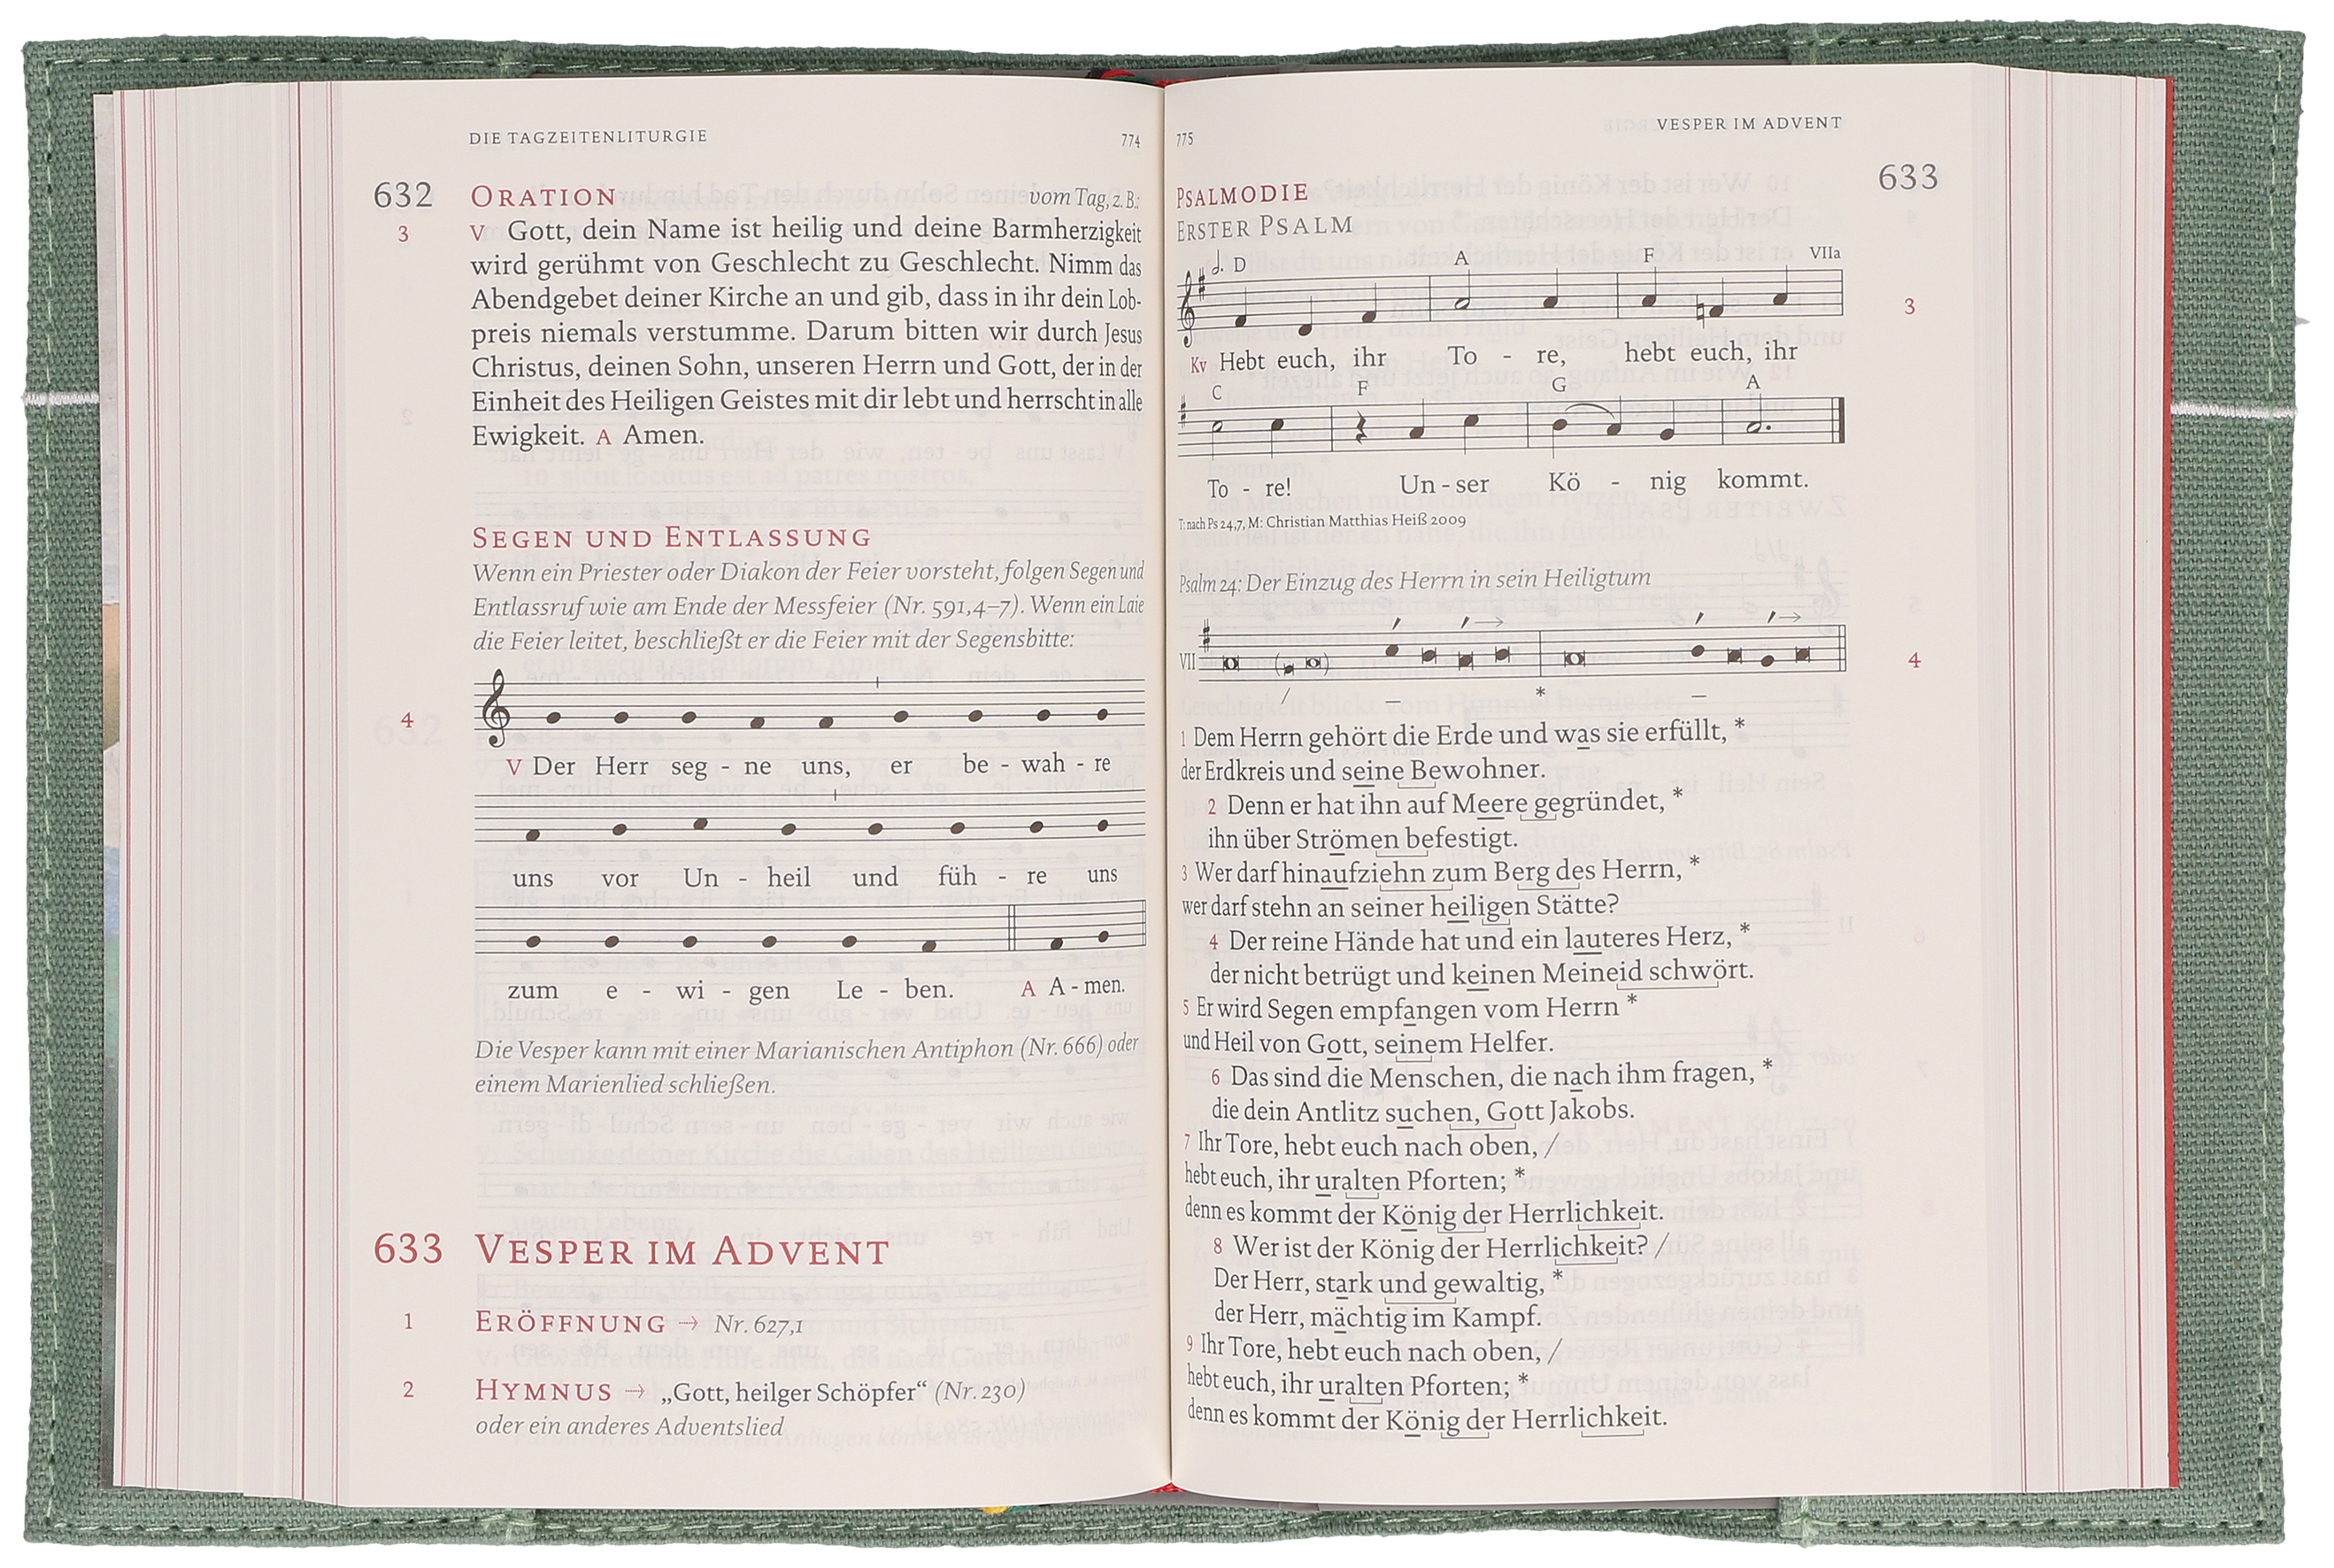 DIE TAGZEITENLITURGIE 774
632 ORATION vom Tag, z. B.:
3 V Gott, dein Name ist heilig und deine Barmherzigkeit
wird gerühmt von Geschlecht zu Geschlecht. Nimm das
Abendgebet deiner Kirche an und gib, dass in ihr dein Lob-
preis niemals verstumme. Darum bitten wir durch Jesus
Christus, deinen Sohn, unseren Herrn und Gott, der in der
Einheit des Heiligen Geistes mit dir lebt und herrscht in alle
Ewigkeit. A Amen.
SEGEN UND ENTLASSUNG
Wenn ein Priester oder Diakon der Feier vorsteht, folgen Segen und
Entlassruf wie am Ende der Messfeier (Nr. 591,4–7). Wenn ein Laie
die Feier leitet, beschließt er die Feier mit der Segensbitte:
4
V Der Herr seg - ne uns, er be - wah - re
uns vor Un - heil und füh - re uns
zum e - wi - gen Le - ben. A A - men.
Die Vesper kann mit einer Marianischen Antiphon (Nr. 666) oder
einem Marienlied schließen.
633 VESPER IM ADVENT
1 ERÖFFNUNG → Nr. 627,1
2 HYMNUS → „Gott, heilger Schöpfer“ (Nr. 230)
oder ein anderes Adventslied
775 VESPER IM ADVENT
633
PSALMODIE
ERSTER PSALM
D A F VIIa
3
Kv Hebt euch, ihr To - re, hebt euch, ihr
C F G A
To - re! Un - ser Kö - nig kommt.
T: nach Ps 24,7, M: Christian Matthias Heiß 2009
Psalm 24: Der Einzug des Herrn in sein Heiligtum
VII 4
/ – * –
1 Dem Herrn gehört die Erde und was sie erfüllt, *
der Erdkreis und seine Bewohner.
2 Denn er hat ihn auf Meere gegründet, *
ihn über Strömen befestigt.
3 Wer darf hinaufziehn zum Berg des Herrn, *
wer darf stehn an seiner heiligen Stätte?
4 Der reine Hände hat und ein lauteres Herz, *
der nicht betrügt und keinen Meineid schwört.
5 Er wird Segen empfangen vom Herrn *
und Heil von Gott, seinem Helfer.
6 Das sind die Menschen, die nach ihm fragen, *
die dein Antlitz suchen, Gott Jakobs.
7 Ihr Tore, hebt euch nach oben, /
hebt euch, ihr uralten Pforten; *
denn es kommt der König der Herrlichkeit.
8 Wer ist der König der Herrlichkeit? /
Der Herr, stark und gewaltig, *
der Herr, mächtig im Kampf.
9 Ihr Tore, hebt euch nach oben, /
hebt euch, ihr uralten Pforten; *
denn es kommt der König der Herrlichkeit.